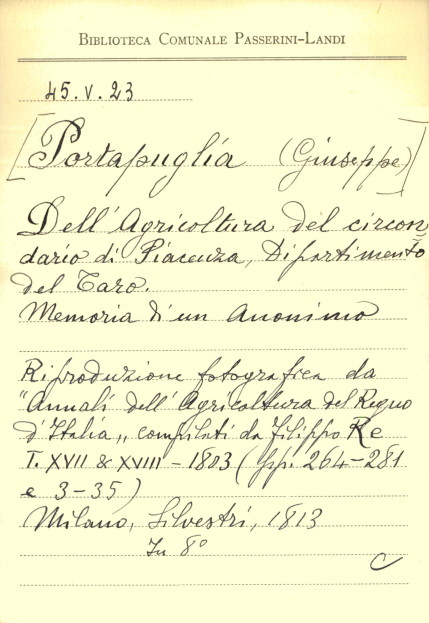 BIBLIOTECA COMUNALE PASSERINI-LANDI
45.V.23
[Portapuglia (Giuseppe)]
Dell'Agricoltura del circon
dario di Piacenza, Dipartimento
del Taro.
Memoria di un Anonimo
Riproduzione fotografica da
"Annali dell'Agricoltura del Regno
d'Italia„ compilati da Filippo Re
T. XVII & XVIII - 1803 (pp. 264-281
e 3-35)
Milano, Silvestri, 1813
In 8°
C